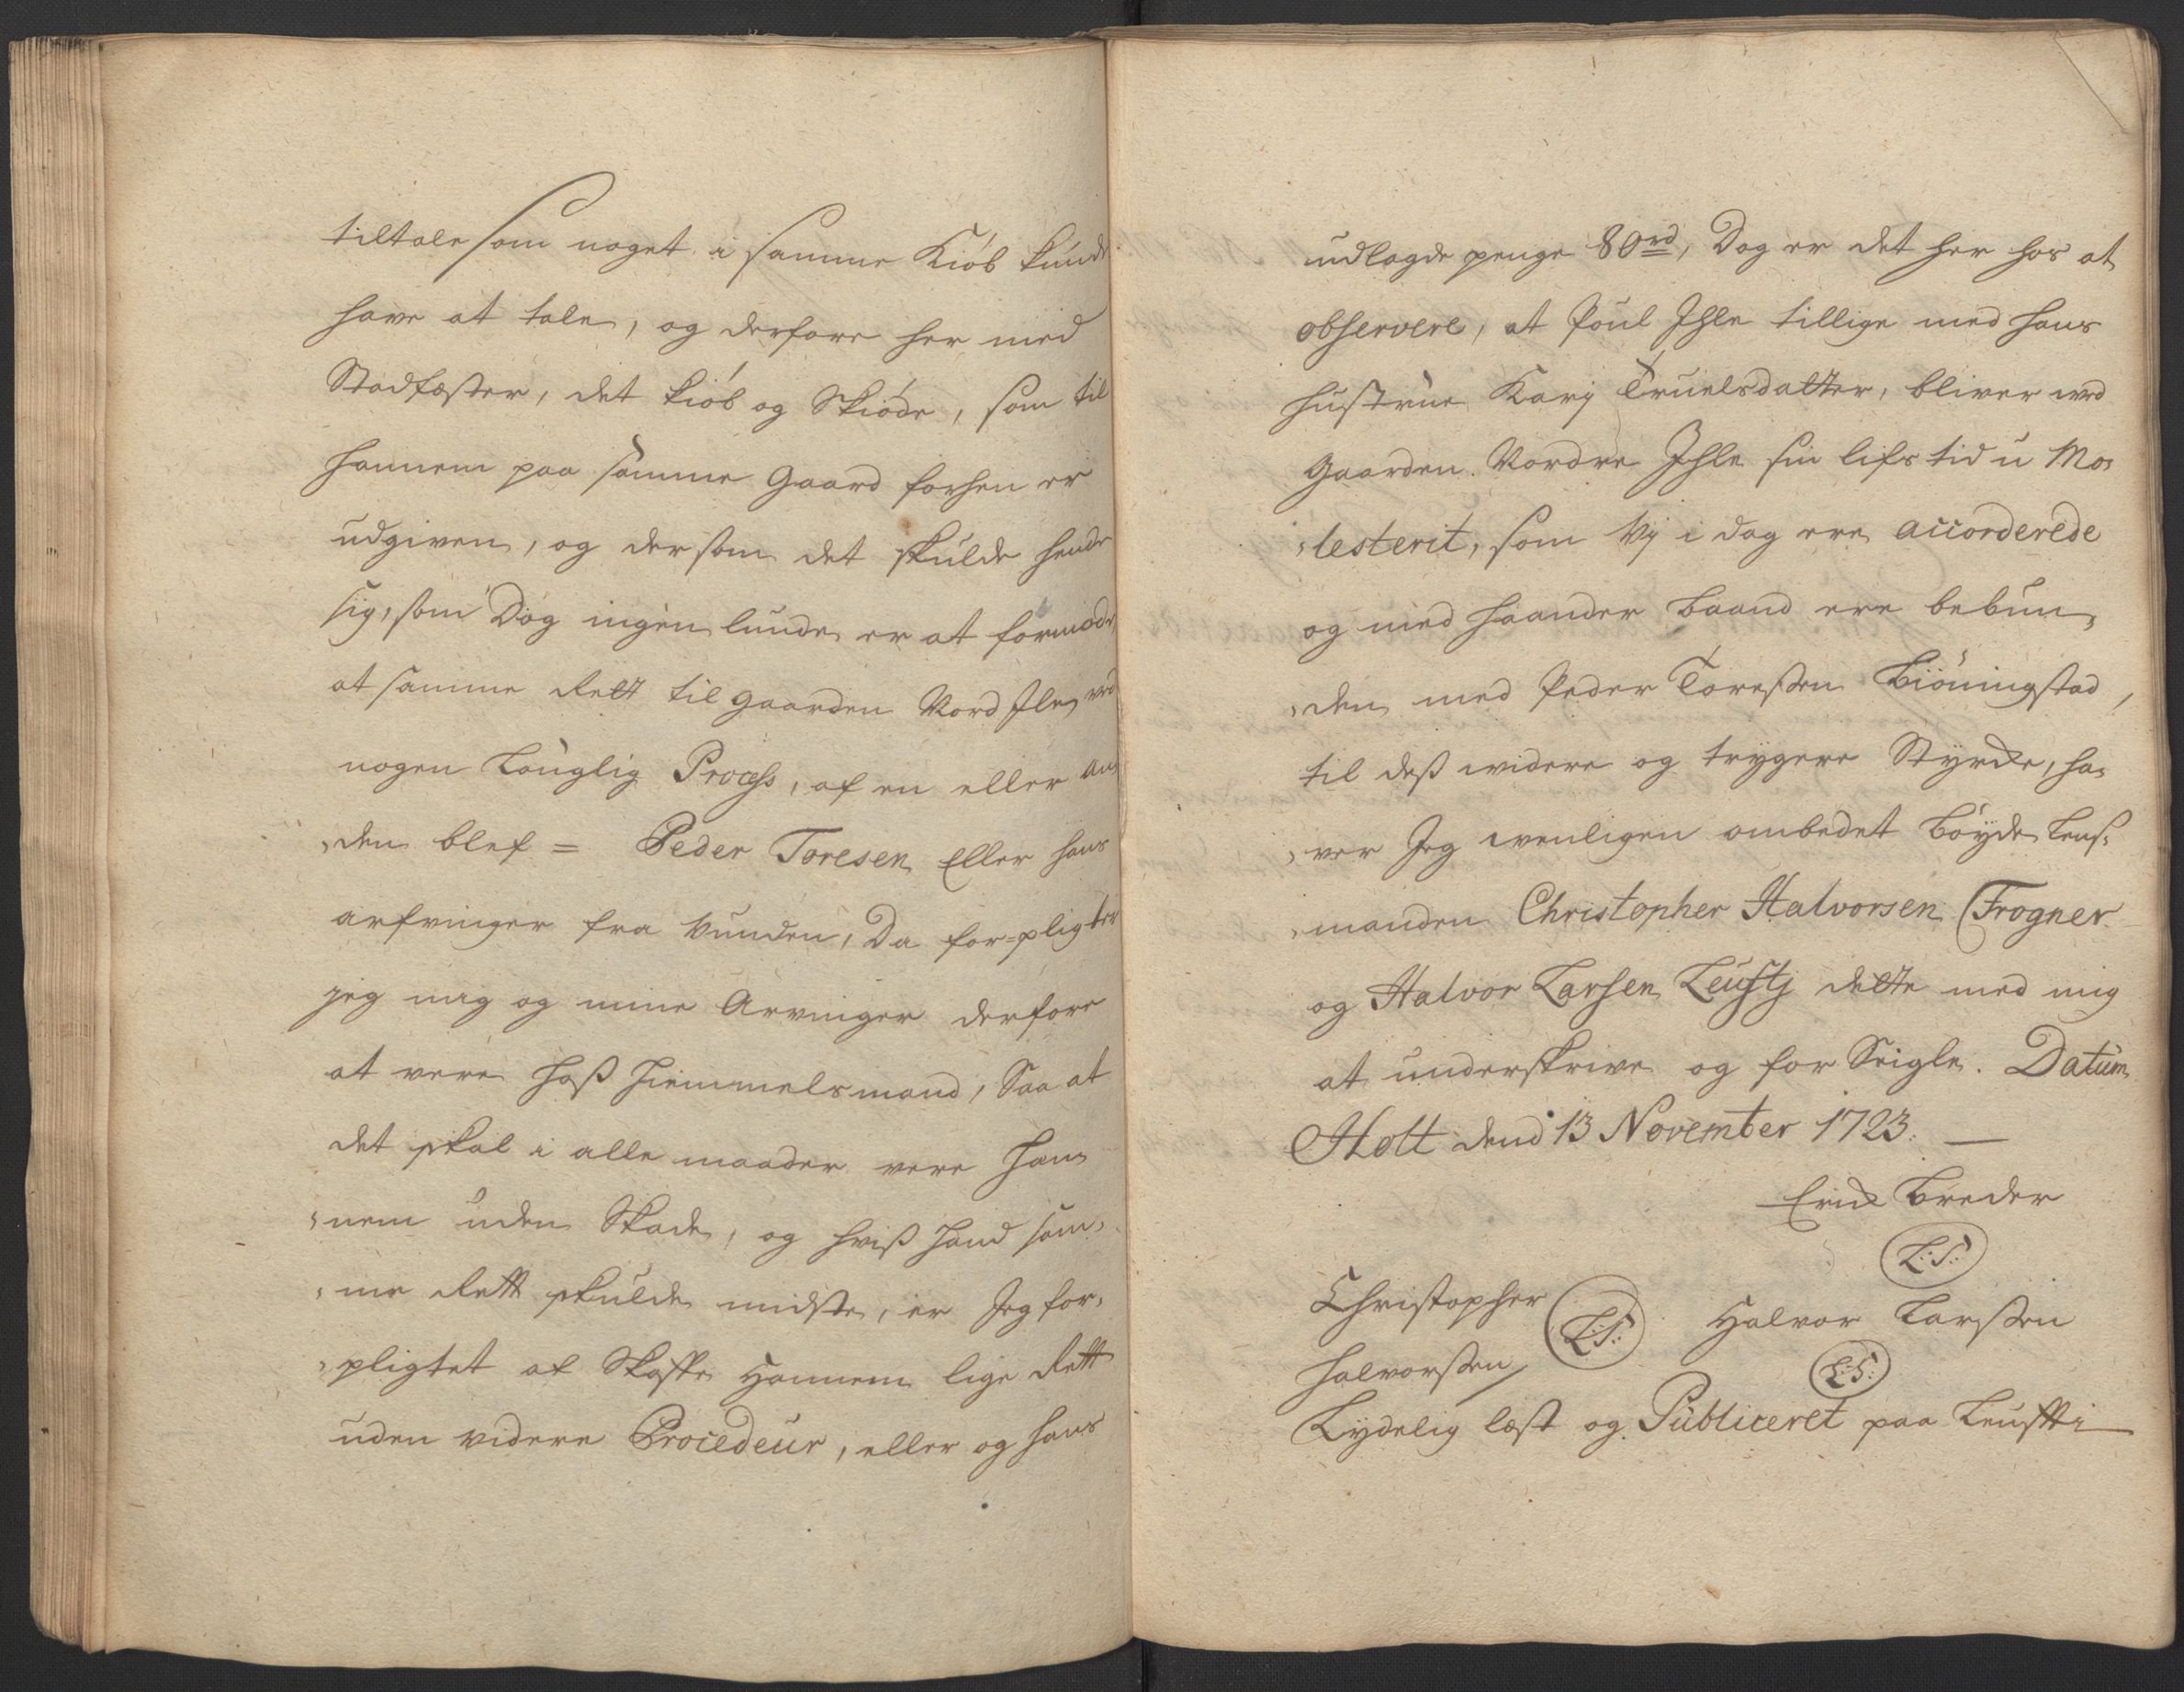 tiltale som noget i samme Kiöb kunde
have at tale, og derfore her med
Stadfæster, det kiöb og Skiöde, som til
hannem paa samme Gaard forhen er
udgiven, og dersom det skulde hende
sig, som Dog ingenlunde er at formode,
at samme Rett til gaarden Nord Ilen ved
nogen Louglig Process, af en eller an,
,den blef = Peder Toresen Eller hans
arfvinger fra Vunden, Da for=pligter
jeg mig og mine Arvinger derfore
at vere hoß hiemmelsmand, Saa at
det skal i alle maader vere Han,
,nem uden Skade, og hviß Hand sam,
,me Rett skulde midste, er Jeg for,
,pligtet at Skaffe Hannem lige Rett
uden videre Procedeur, eller og hans
udlagde penge 80 rd, Dog er det her hos at
observere, at Poul Ihle tillige med hans
hustrue Karj Truelsdatter, bliver ved
Gaarden Nordre Ihle sin lifs tid u Mo,
,lesterit, som Vj i dag ere accorderede
og med haander Baand ere bebun,
,den med Peder Toreßen Biöningstad,
til deß widere og trygere Styrke, ha,
,ver Jeg wenligen ombedet Böyde Lens,
,manden Christopher Halvorsen Frogner
og Halvor Larsen Leustj dette med mig
at underskrive og for Seigle. Datum
Holt dend 13 November 1723. —
Erick Breder
L:S:
Christopher L:S: Halvor Larßen
Halvorßen L:S:
Lydelig læst og Publiceret paa Leusti